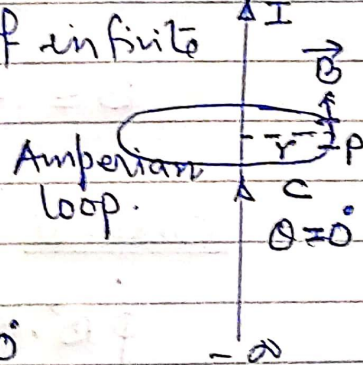 f infinite
I
B
r
P
Amperian
loop.
C
θ = 0°
0°
- ∞